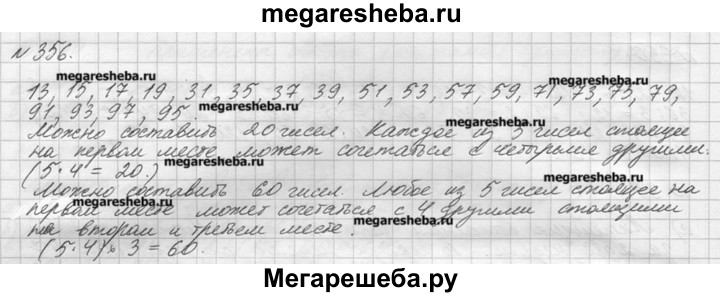 megaresheba.ru
N 356.
megaresheba.ru megaresheba.ru
13, 15, 17, 19, 31, 35, 37, 39, 51, 53, 57, 59, 71, 73, 75, 79,
91, 93, 97, 95. megaresheba.ru
Можно составить 20 чисел. Каждое из 5 чисел стоящее
на первом месте может сочетаться с четырьмя другими.
megaresheba.ru megaresheba.ru
(5·4 = 20.)
Можно составить 60 чисел. Любое из 5 чисел стоящее на
megaresheba.ru
первом месте может сочетаться с 4 другими стоящими
на втором и третьем месте. megaresheba.ru
(5·4)·3 = 60.
Мегарешеба.ру